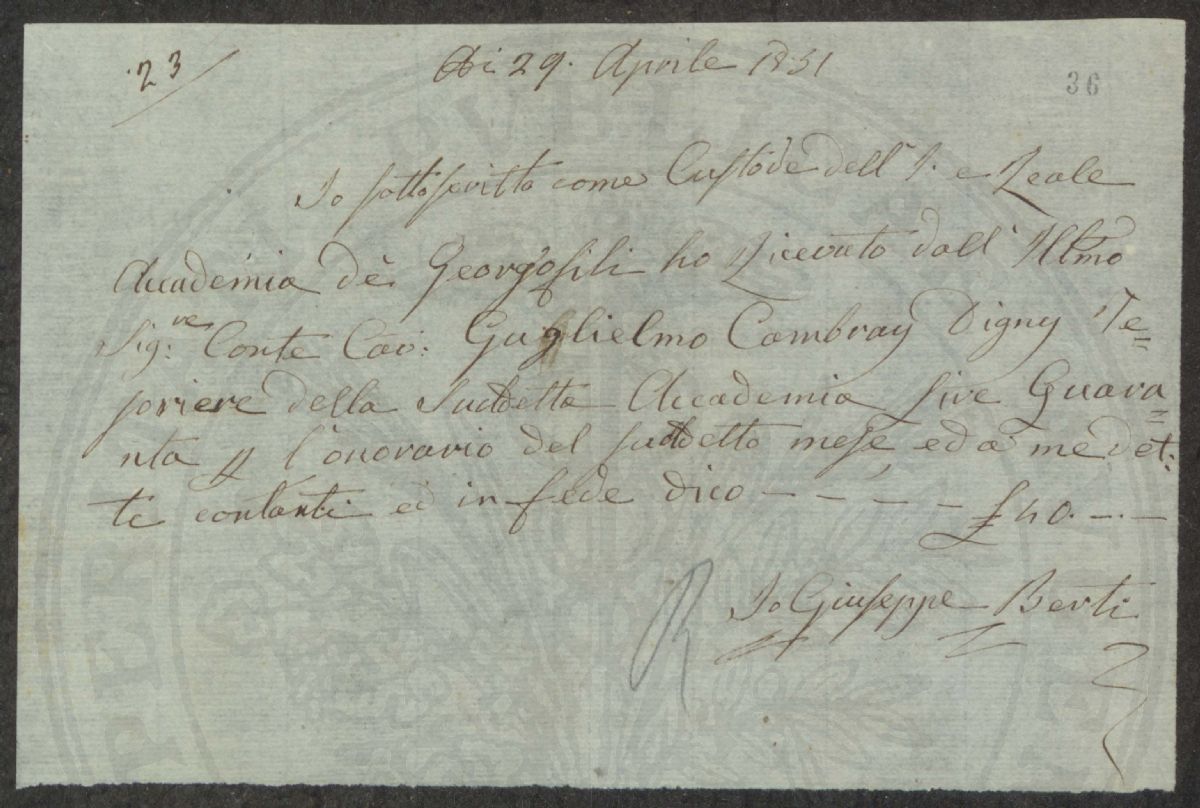 23
Adi 29. Aprile 1831
36
Io sottoscritto come Custode dell'I. e Reale
Accademia dè Georgofili ho Ricevuto dall'Illmo
Sig:re Conte Cav: Guglielmo Cambray Digny Te=
soriere della Suddetta Accademia Lire Quara=
nta p l'onorario del suddetto mese, ed a me det:
ti contanti ed in fede dico — — — — — £ 40. — —
R
Io Giuseppe Berti